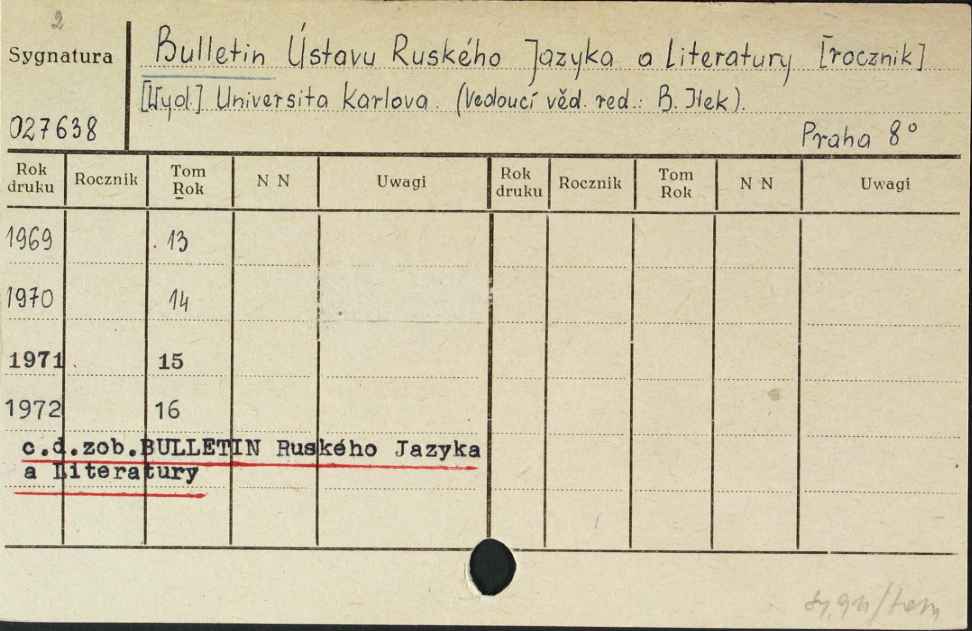 2
Sygnatura
Bulletin Ústavu Ruského Jazyka a Literatury [rocznik]
[Wyd.] Universita Karlova. (Vedoucí věd. red.: B. Ilek).
027638
Praha 8°
Rok druku Rocznik Tom Rok N N Uwagi Rok druku Rocznik Tom Rok N N Uwagi
1969 13
1970 14
1971 15
1972 16
c.d.zob.BULLETIN Ruského Jazyka
a Literatury